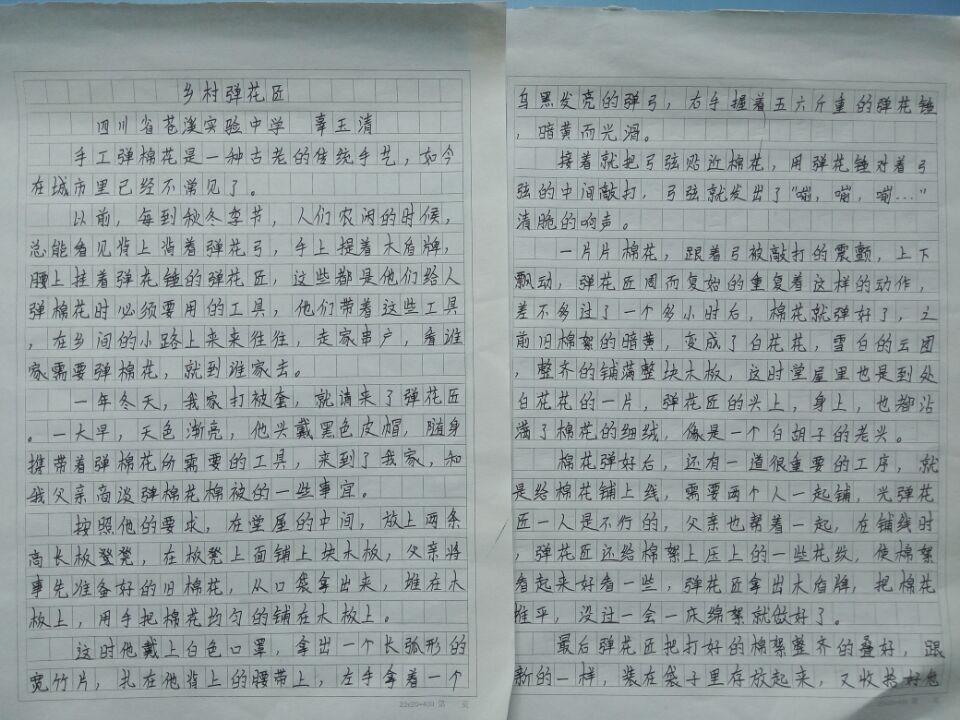 乡村弹花匠
四川省苍溪实验中学 辜玉清
手工弹棉花是一种古老的传统手艺，如今
在城市里已经不常见了。
以前，每到秋冬季节，人们农闲的时候，
总能看见背上背着弹花弓，手上提着木盾牌，
腰上挂着弹花锤的弹花匠，这些都是他们给人
弹棉花时必须要用的工具，他们带着这些工具
，在乡间的小路上来来往往，走家串户，看谁
家需要弹棉花，就到谁家去。
一年冬天，我家打被套，就请来了弹花匠
。一大早，天色渐亮，他头戴黑色皮帽，随身
携带着弹棉花所需要的工具，来到了我家，和
我父亲商谈弹棉花棉被的一些事宜。
按照他的要求，在堂屋的中间，放上两条
高长板凳凳，在板凳上面铺上块木板，父亲将
事先准备好的旧棉花，从口袋拿出来，堆在木
板上，用手把棉花均匀的铺在木板上。
这时他戴上白色口罩，拿出一个长弧形的
宽竹片，扎在他背上的腰带上，左手拿着一个
乌黑发亮的弹弓，右手握着五六斤重的弹花锤
，暗黄而光滑。
接着就把弓弦贴近棉花，用弹花锤对着弓
弦的中间敲打，弓弦就发出了“嘣，嘣，嘣…”
清脆的响声。
一片片棉花，跟着弓被敲打的震颤，上下
飘动，弹花匠周而复始的重复着这样的动作，
差不多过了一个多小时后，棉花就弹好了，之
前旧棉絮的暗黄，变成了白花花，雪白的云团
，整齐的铺满整块木板，这时堂屋里也是到处
白花花的一片，弹花匠的头上，身上，也都沾
满了棉花的细线，像是一个白胡子的老头。
棉花弹好后，还有一道很重要的工序，就
是给棉花铺上线，需要两个人一起铺，光弹花
匠一人是不行的，父亲也帮着一起，在铺线时
，弹花匠还给棉絮上压上的一些花纹，使棉絮
看起来好看一些，弹花匠拿出木盾牌，把棉花
推平，没过一会一床绵絮就做好了。
最后弹花匠把打好的棉絮整齐的叠好，跟
新的一样，装在袋子里存放起来，又收拾好他
22x20=440 第 页
22x20=440 第 页